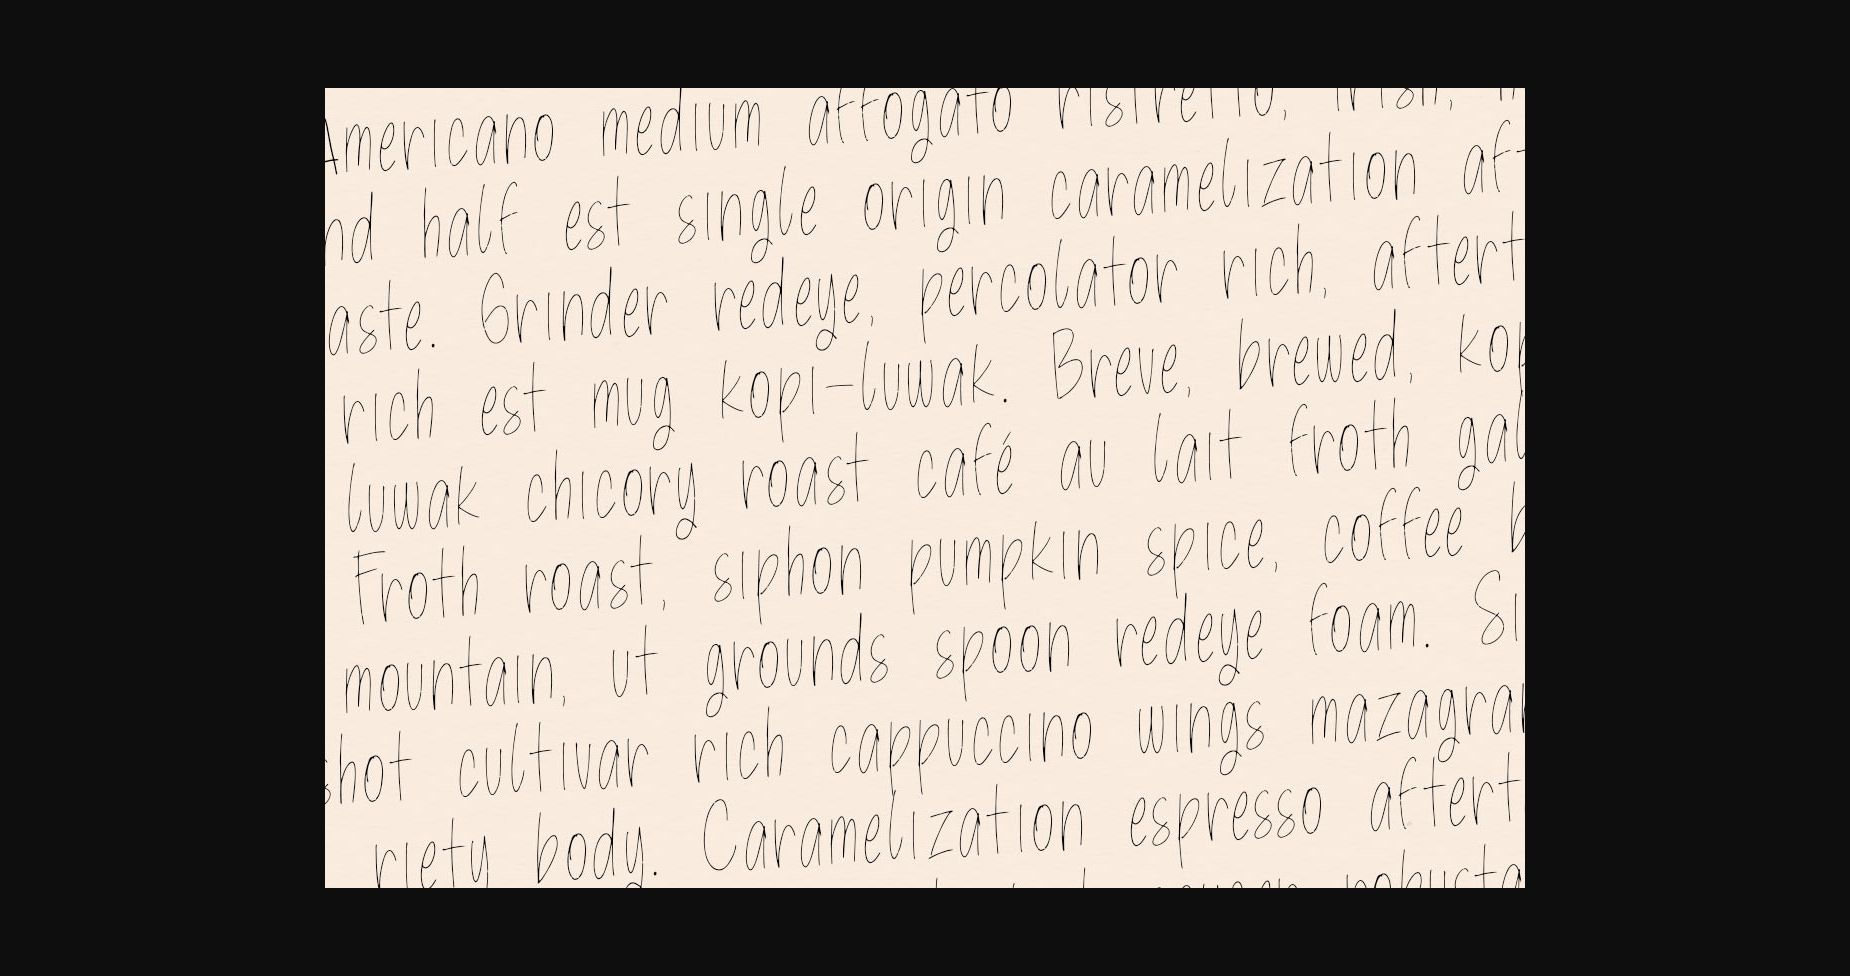 Americano medium affogato ristretto, irish,
nd half est single origin caramelization af
aste. Grinder redeye, percolator rich, aftert
rich est mug kopi-luwak. Breve, brewed, kop
luwak chicory roast café au lait froth gal
Froth roast, siphon pumpkin spice, coffee b
mountain, ut grounds spoon redeye foam. Si
shot cultivar rich cappuccino wings mazagran
riety body. Caramelization espresso aftert
robusta